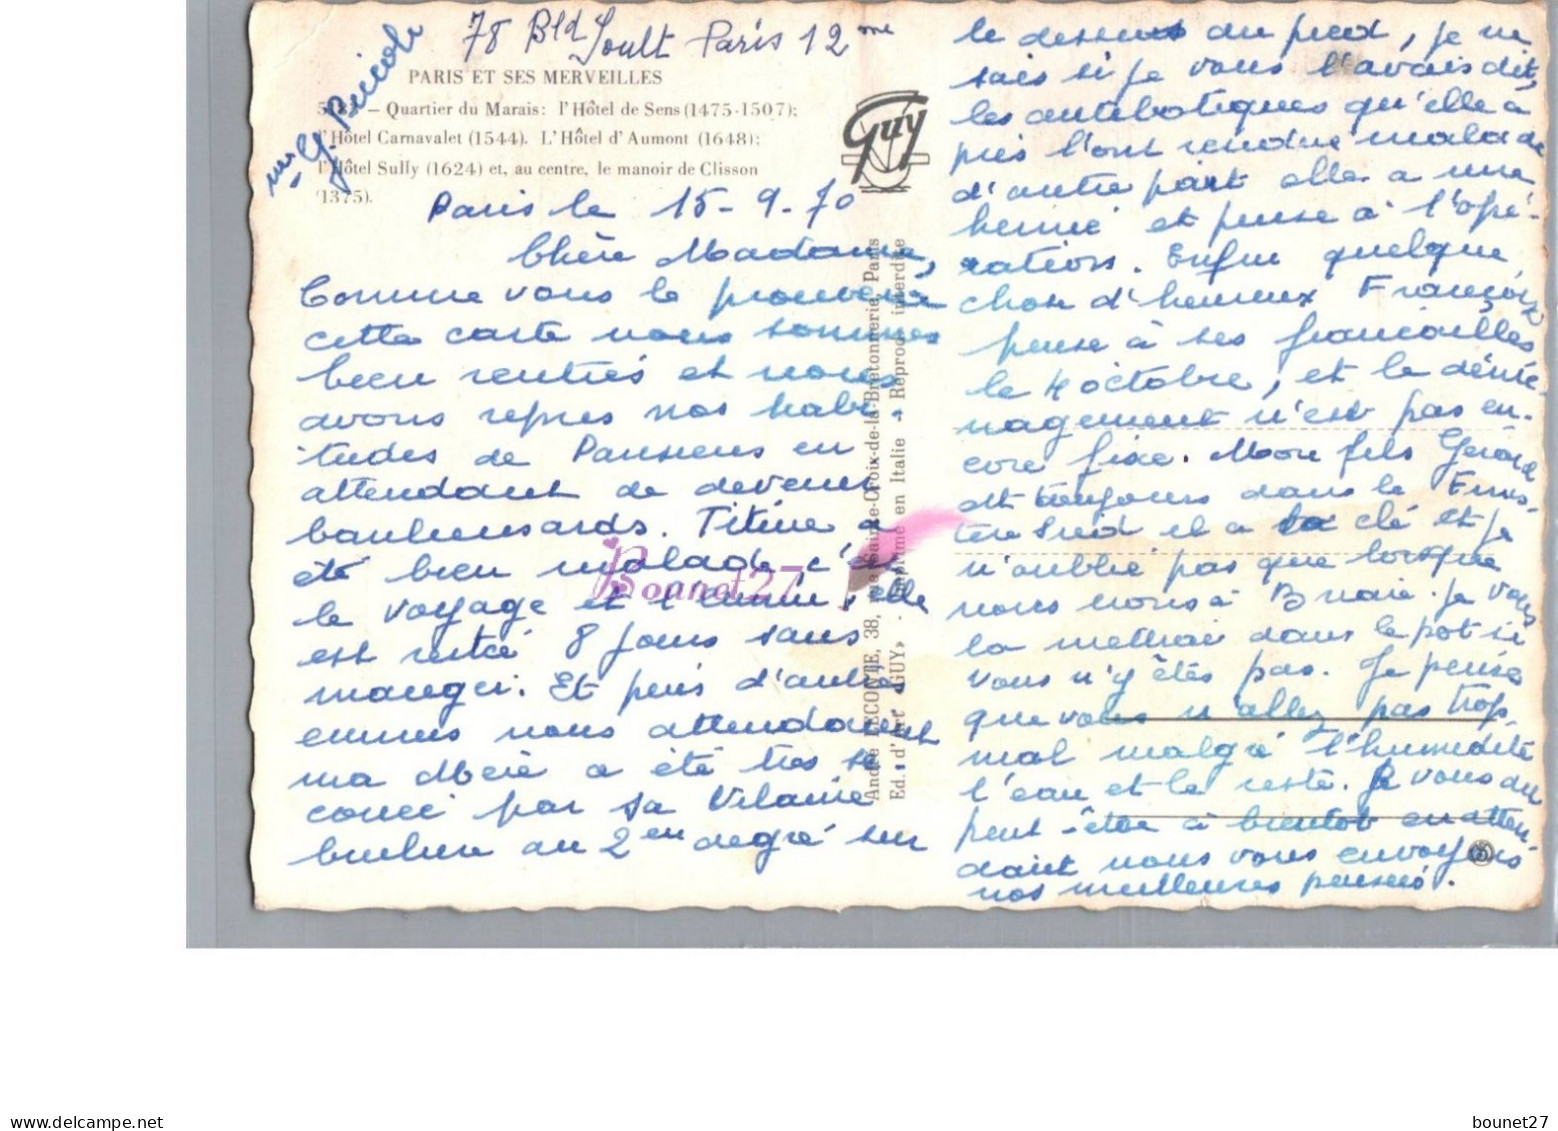 78 Bld Soult Paris 12 me
PARIS ET SES MERVEILLES
— Quartier du Marais: l'Hôtel de Sens (1475-1507);
l'Hôtel Carnavalet (1544). L'Hôtel d'Aumont (1648);
l'Hôtel Sully (1624) et, au centre, le manoir de Clisson
(1375).
Guy
Paris le 15-9-70
Chère Madame,
Comme vous le prouvera
cette carte nous sommes
bien rentrés et nous
avons repris nos habi-
tudes de Parisiens en
attendant de devenir
banlieusards. Titine a
été bien malade, c'est
le voyage et l'ennui, elle
est restée 8 jours sans
manger. Et puis d'autres
ennuis nous attendaient
ma Mère a été très se-
couée par sa vilaine
brulure au 2 eme degré sur
André LECONTE, 38, rue Sainte-Croix-de-la-Bretonnerie, Paris
Ed. d'Art «GUY» - Imprimé en Italie - Reprod. interdite
le dessus du pied, je ne
sais si je vous l'avais dit,
les antibotiques qu'elle a
pris l'ont rendue malade
d'autre part elle a une
hernie et pense à l'opé-
ration. Enfin quelque
chose d'heureux François
pense à ses fiançailles
le 4 octobre, et le démé-
nagement n'est pas en-
core fixé. Mon fils Gérard
est toujours dans le Finis-
tère Sud il a la clé et je
n'oublie pas que lorsque
nous irons à je vous
la mettrai dans le pot si
vous n'y êtes pas. Je pense
que vous n'allez pas trop
mal malgré l'humidité
l'eau et le reste. Je vous dis
peut-être à bientôt en atten-
dant nous vous envoyons
nos meilleures pensées.
Bonnet27
bounet27